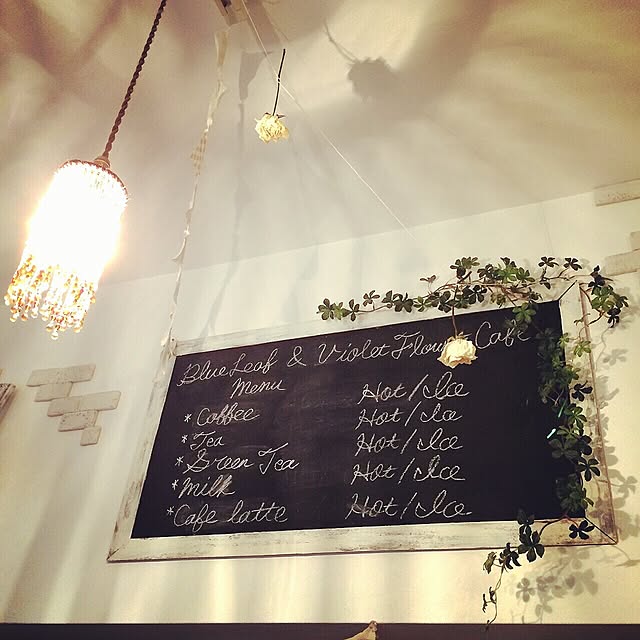 Blue Leaf & Violet Flour Cafe
Menu Hot/Ice
* Coffee Hot/Ice
* Tea Hot/Ice
* Green Tea Hot/Ice
* Milk
* Cafe latte Hot/Ice